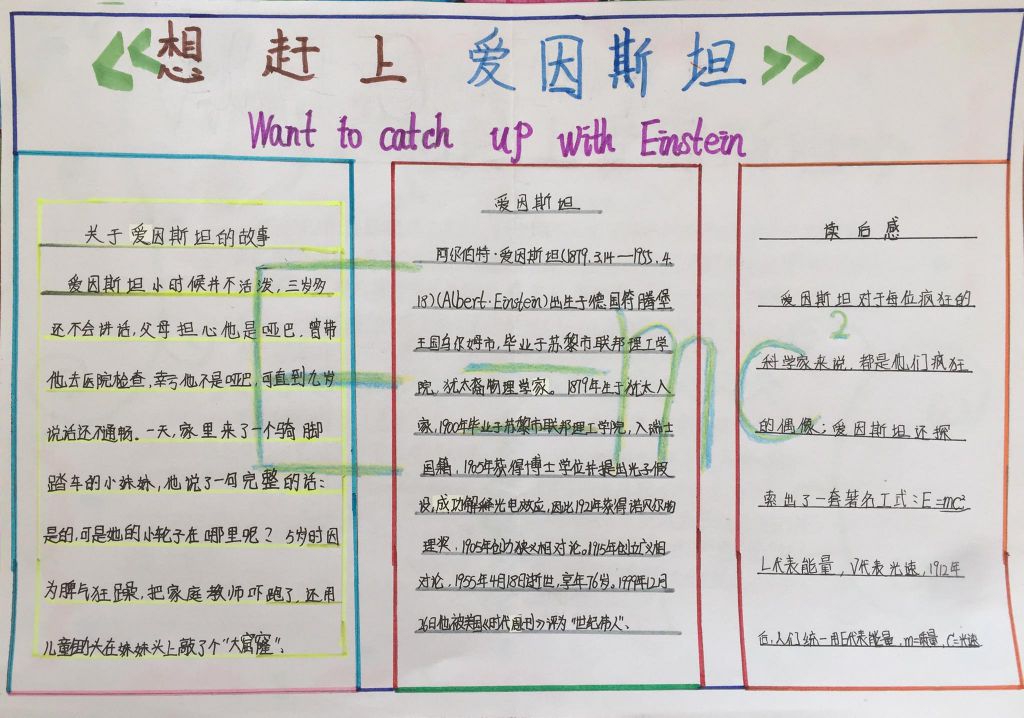 《想 赶 上 爱因斯坦》
Want to catch up with Einstein
关于爱因斯坦的故事
爱因斯坦小时候并不活泼，三岁多
还不会讲话，父母担心他是哑巴，曾带
他去医院检查，幸亏他不是哑巴，可直到九岁
说话还不通畅。一天，家里来了一个骑脚
踏车的小妹妹，他说了一句完整的话：
是的，可是她的小轮子在哪里呢？5岁时因
为脾气狂躁，把家庭教师吓跑了，还用
儿童锄头在妹妹头上敲了个“大窟窿”。
爱因斯坦
阿尔伯特·爱因斯坦(1879.3.14—1955.4.
18)(Albert·Einstein)出生于德国符腾堡
王国乌尔姆市，毕业于苏黎市联邦理工学
院，犹太裔物理学家。1879年生于犹太人
家，1900年毕业于苏黎市联邦理工学院，入瑞士
国籍，1905年获得博士学位并提出光子假
设，成功解释光电效应，因此1921年获得诺贝尔物
理奖，1905年创办狭义相对论。1915年创立广义相
对论，1955年4月18日逝世，享年76岁。1999年12月
26日他被美国《时代周刊》评为“世纪伟人”。
读后感
爱因斯坦对于每位疯狂的
科学家来说，都是他们疯狂
的偶像；爱因斯坦还探
索出了一套著名工式：E=mc²
L代表能量，V代表光速，1912年
后，人们统一用E代表能量，m=质量，C=光速
E=mc²